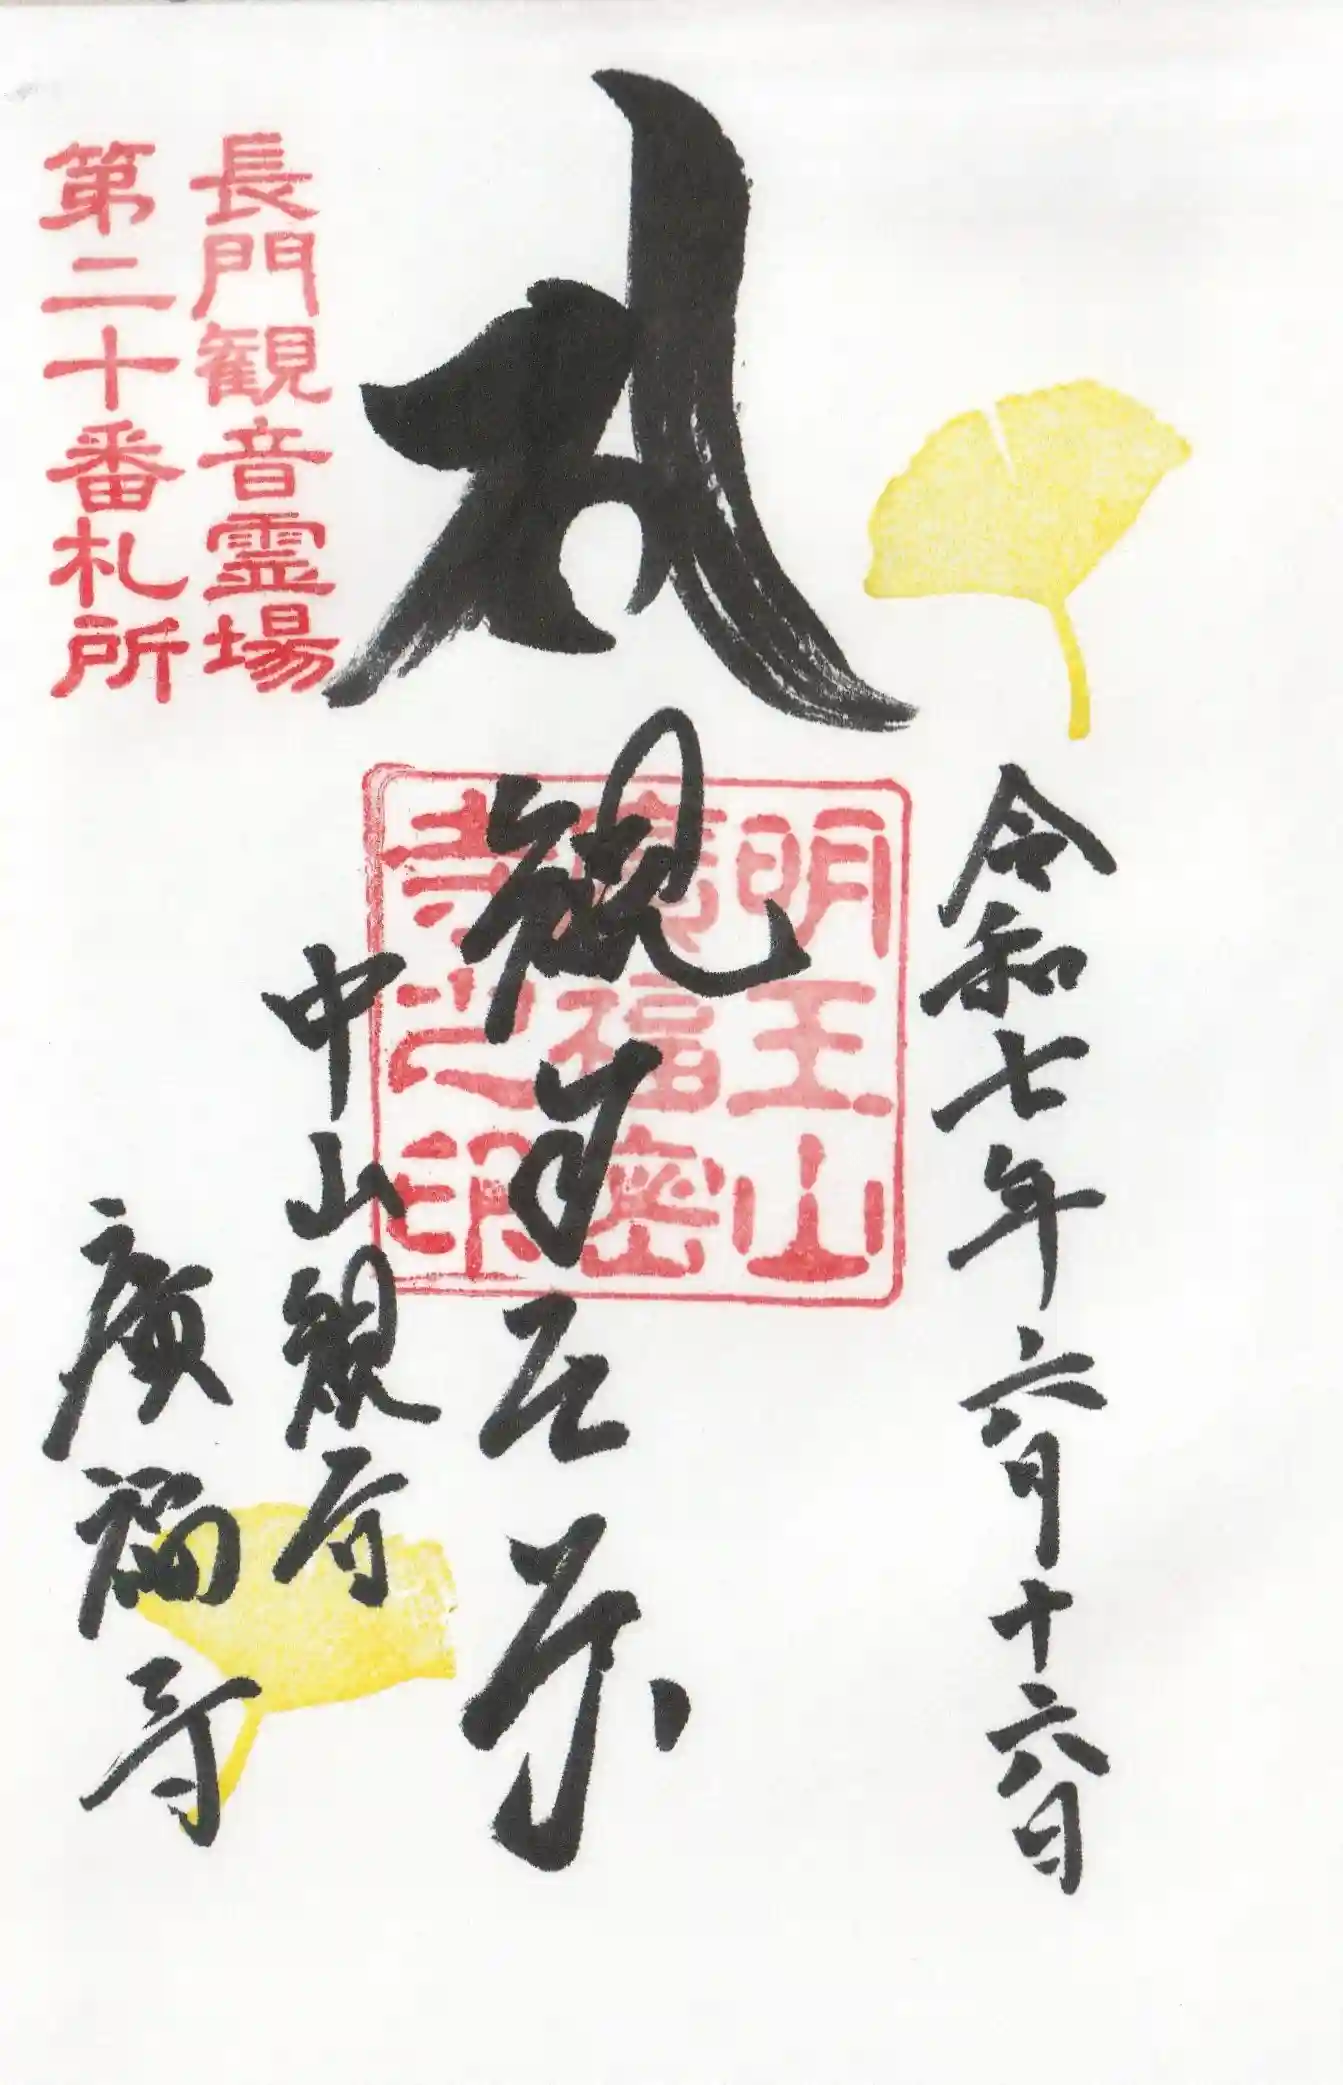 令和七年六月十六日
𑖭
観
明王山
廣福密
寺之印
中山観寺
廣福寺
長門観音霊場
第二十番札所